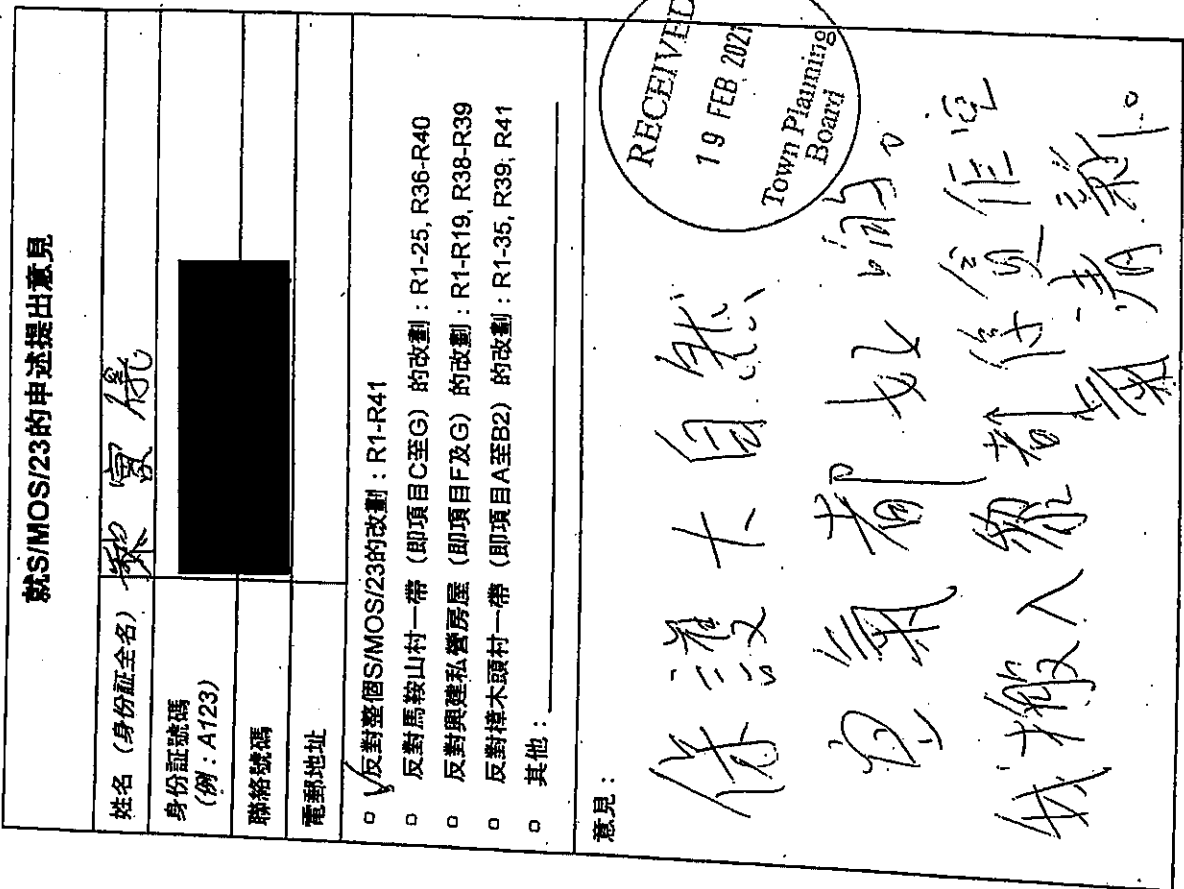 就S/MOS/23的申述提出意見
姓名（身份証全名） 黎寶儀
身份証號碼
(例：A123)
聯絡號碼
電郵地址
反對整個S/MOS/23的改劃：R1-R41
反對馬鞍山村一帶（即項目C至G）的改劃：R1-25, R36-R40
反對興建私營房屋（即項目F及G）的改劃：R1-R19, R38-R39
反對樟木頭村一帶（即項目A至B2）的改劃：R1-35, R39, R41
其他：
意見：
保護大自然、
空氣都好啲。
人
清新。
RECEIVED
19 FEB 2021
Town Planning
Board